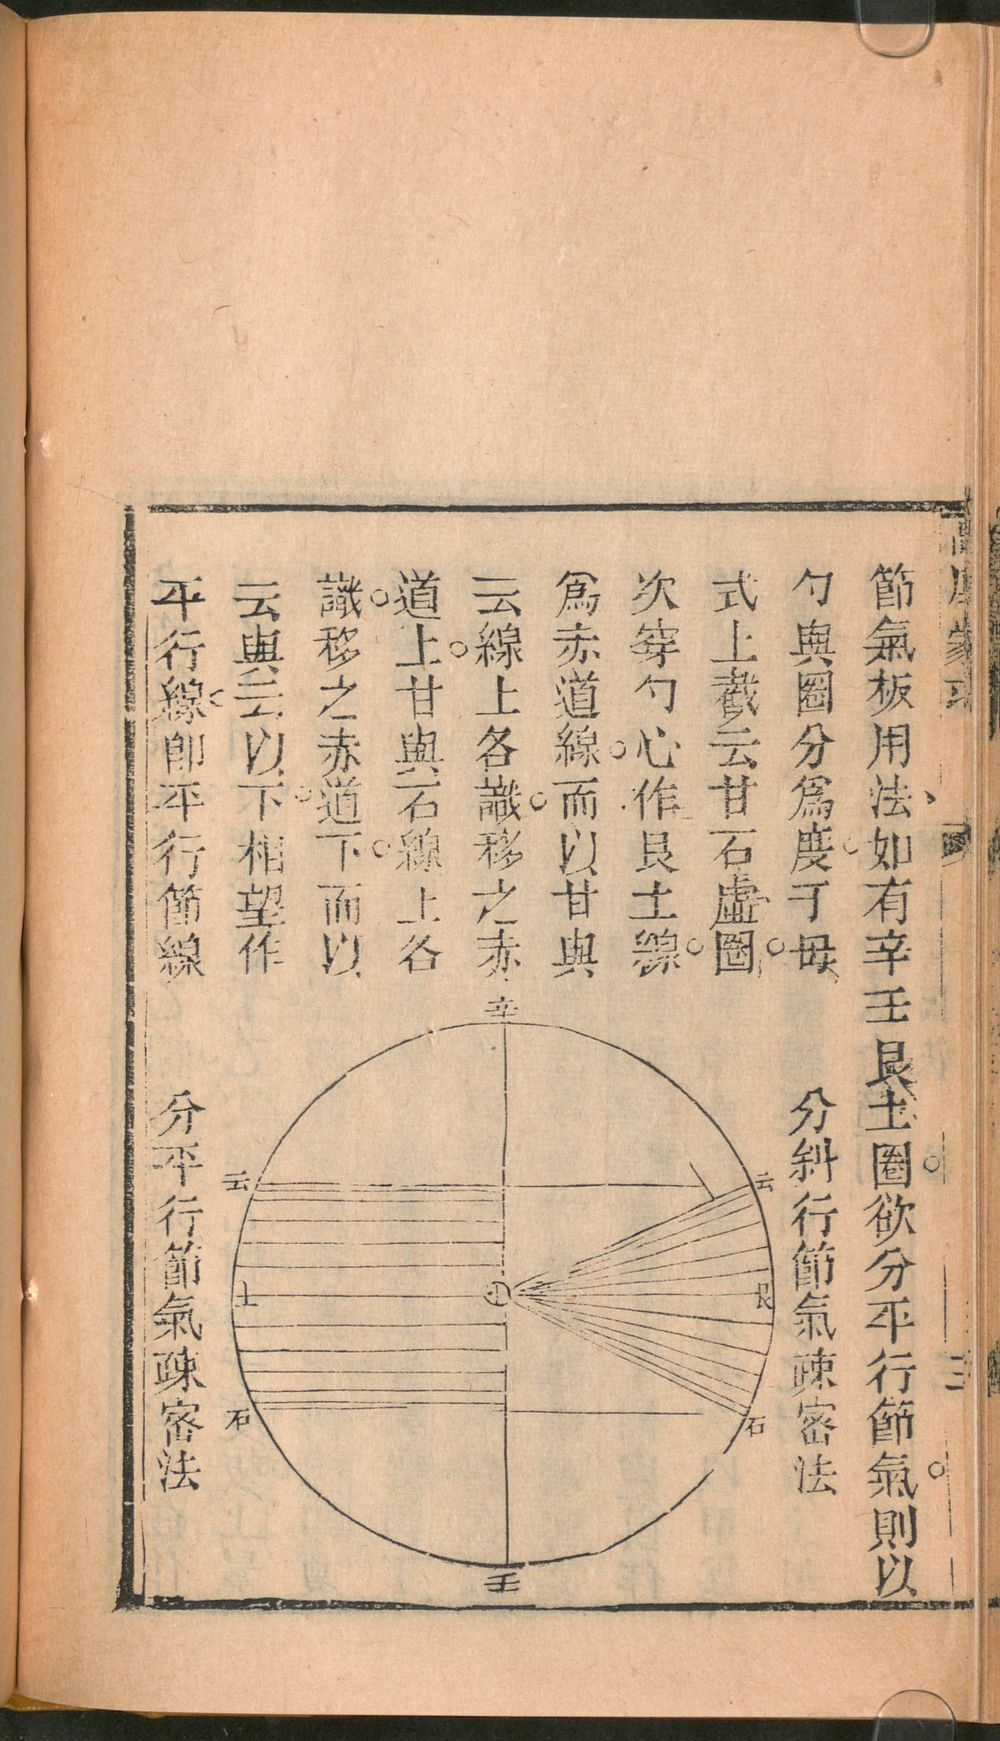 節氣板用法如有辛壬艮土圈欲分平行節氣則以
勺與圈分爲度于毋
分斜行節氣疎密法
式上截云甘石虛圈
次穿勺心作艮土線
爲赤道線而以甘與
云線上各識移之赤
道上甘與石線上各
識移之赤道下而以
云與云以下相望作
平行線卽平行節線
分平行節氣疎密法
辛
云
云
土
艮
石
石
壬
三